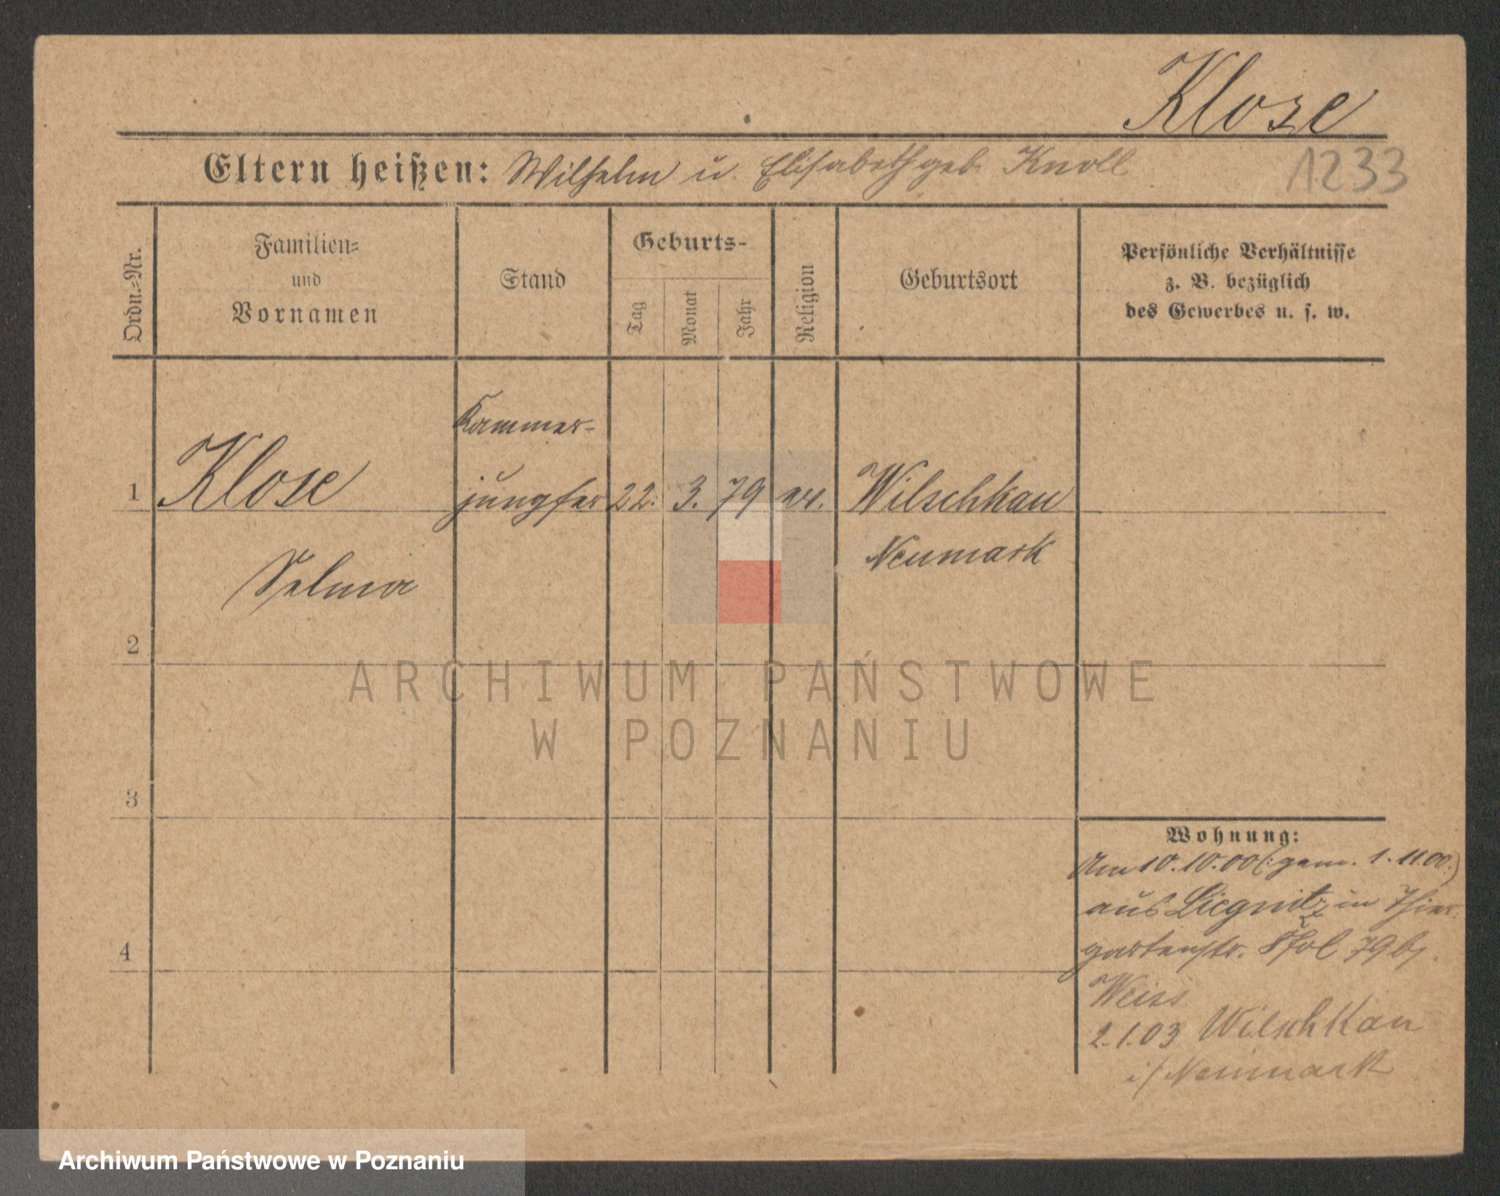 Klose
Eltern heißen: Wilhelm u. Elisabeth geb. Knoll
1233
Ordn.-Nr.
Familien-
und
Vornamen
Stand
Geburts-
Tag
Monat
Jahr
Religion
Geburtsort
Persönliche Verhältnisse
z. B. bezüglich
des Gewerbes u. s. w.
Kammer-
1 Klose jungfer 22. 3. 79 ev. Wilschkau
Neumark
Selma
2
ARCHIWUM PAŃSTWOWE
W POZNANIU
3
Wohnung:
Am 10.10.00 (: gem. 1.11.00 :)
aus Liegnitz in Thier-
gartenstr. 79
4
Weiss
2.1.03 Wilschkau
i/ Neumark
Archiwum Państwowe w Poznaniu